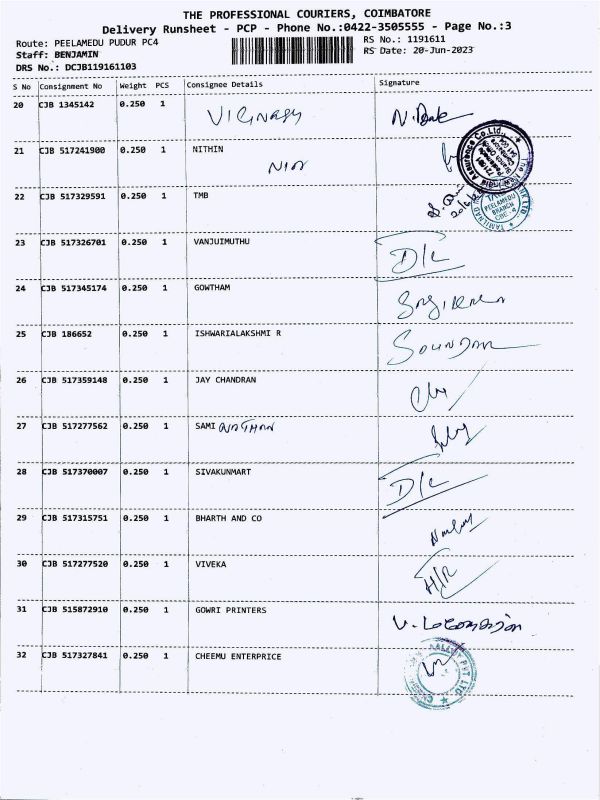 THE PROFESSIONAL COURIERS, COIMBATORE
Delivery Runsheet - PCP - Phone No.:0422-3505555 - Page No.:3
Route: PEELAMEDU PUDUR PC4
RS No.: 1191611
Staff: BENJAMIN
RS Date: 20-Jun-2023
DRS No.: DCJB119161103
S No Consignment No Weight PCS Consignee Details Signature
20 CJB 1345142 0.250 1
21 CJB 517241900 0.250 1 NITHIN
22 CJB 517329591 0.250 1 TMB
PEELAMEDU
BRANCH
23 CJB 517326701 0.250 1 VANJUIMUTHU D/L
24 CJB 517345174 0.250 1 GOWTHAM
25 CJB 186652 0.250 1 ISHWARIALAKSHMI R SOUNDAR
26 CJB 517359148 0.250 1 JAY CHANDRAN
27 CJB 517277562 0.250 1 SAMI NATHAN
28 CJB 517370007 0.250 1 SIVAKUNMART D/L
29 CJB 517315751 0.250 1 BHARTH AND CO
30 CJB 517277520 0.250 1 VIVEKA H/R
31 CJB 515872910 0.250 1 GOWRI PRINTERS
32 CJB 517327841 0.250 1 CHEEMU ENTERPRICE